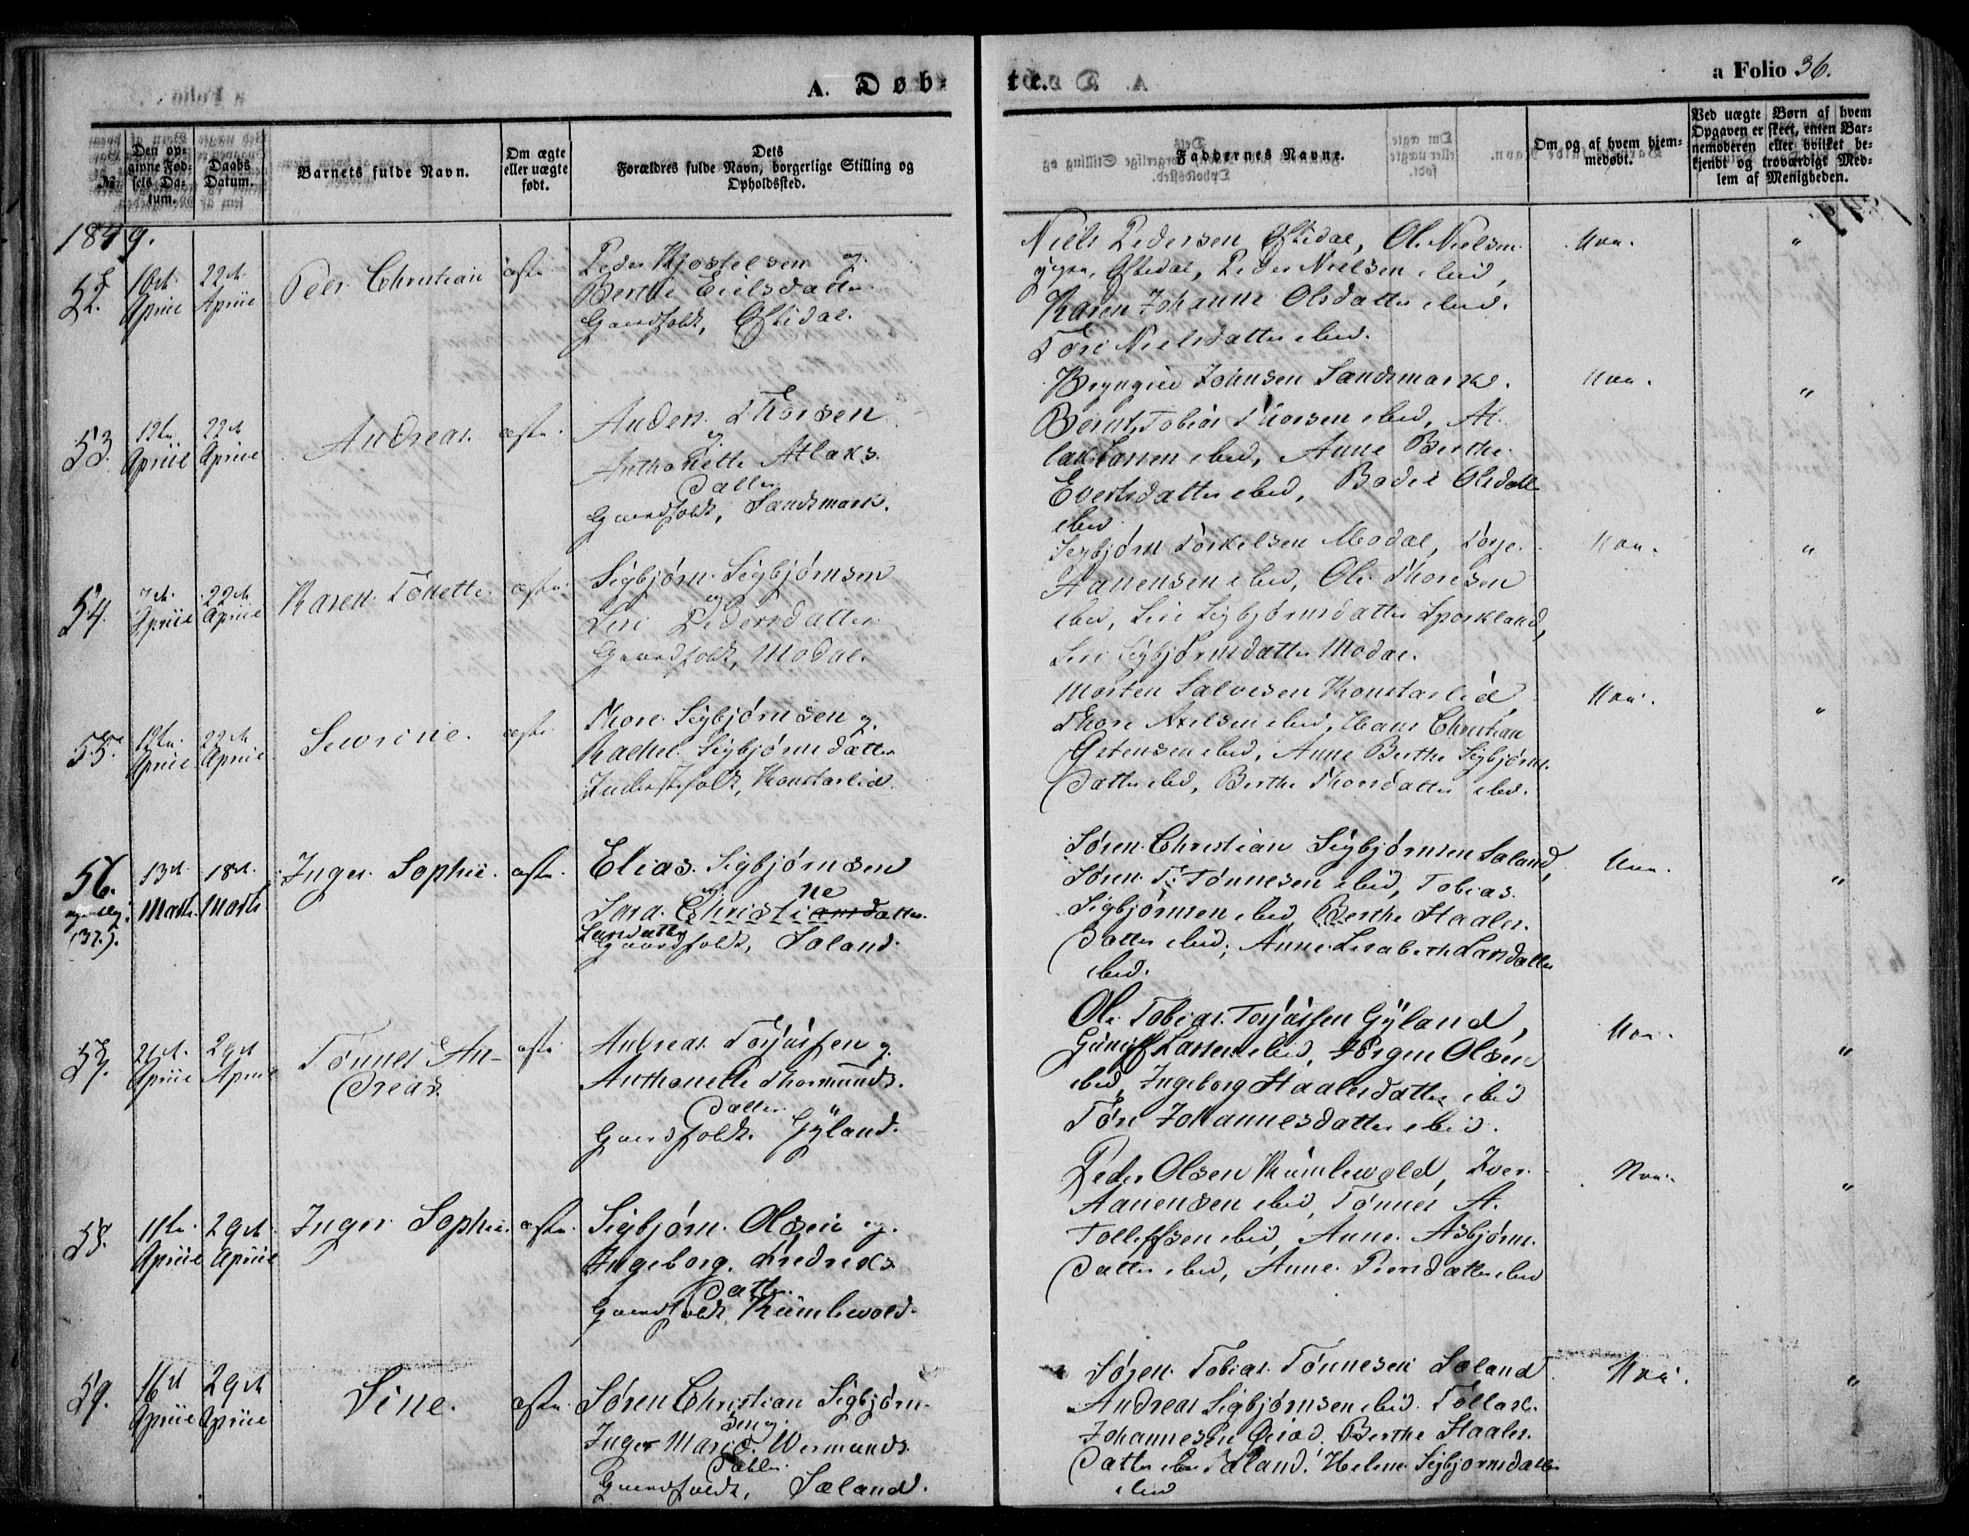 A. Døb-
te.
a Folio 36.
No.
Den opgivne Fødsels Datum.
Daabs Datum.
Barnets fulde Navn.
Om ægte eller uægte født.
Dets Forældres fulde Navn, borgerlige Stilling og Opholdssted.
Faddernes Navne.
Om og af hvem hjemmedøbt.
Ved uægte Børn af hvem Opgaven er skeet, enten Barnemoderen eller hvilket bekjendt og troværdigt Medlem af Menigheden.
1849.
52.
16de April
22de April
Peer Christian
ægte
Peder Kjostelsen og
Berthe Eielsdatter
Gaardfolk, Oftedal.
Niels Pedersen Oftedal, Ole Nielsen
Oftedal, Peder Nielsen ibid,
Karen Johanne Olsdatter ibid.
Tøri Nielsdatter ibid.
53.
12te April
22de April
Andreas.
ægte.
Anders Thorsen
og
Anthonette Atlaks
datter
Gaardfolk, Sandsmark.
Bryngild Johnsen Sandsmark.
Bernt Tobias Thorsen ibid, At-
lak Larsen ibid, Anne Berthe
Evertsdatter ibid, Bodil Olsdatter
ibid.
54.
7de April
22de April
Karen Tonette
ægte
Sigbjørn Sigbjørnsen
og
Siri Pedersdatter
Gaardfolk, Modal.
Sigbjørn Torkelsen Modal, Torje
Aanensen ibid, Ole Thoresen
ibid, Siri Sigbjørnsdatter Sporkland,
Siri Sigbjørnsdatter Modal.
55.
12te April
22de April
Sewrine.
ægte
Thore Sigbjørnsen og
Rachel Sigbjørnsdatter
Inderstfolk, Konstalid
Morten Salvesen Konstalid,
Thore Axelsen ibid, Hans Christian
Østensen ibid, Anne Berthe Sigbjørns-
datter ibid, Berthe Thorsdatter ibid.
56.
egentlig
(37.)
13de Marts
18de Marts
Inger Sophie.
ægte.
Elias Sigbjørnsen
og ne
Sara Christiansdatter
Larsdatter
Gaardfolk, Sæland.
Søren Christian Sigbjørnsen Sæland,
Søren T. Tønnesen ibid, Tobias
Sigbjørnsen ibid, Berthe Haales-
datter ibid, Anne Lisabeth Larsdatter
ibid.
57.
21de April
29de April
Tønnes An-
dreas.
ægte
Andreas Torjussen og
Anthonette Thormunds-
datter
Gaardfolk, Gyland.
Ole Tobias Torjussen Gyland,
Larsen ibid, Jørgen Olsen
ibid, Ingeborg Haalesdatter ibid
Tøri Johannesdatter ibid.
58.
11te April
29de April
Inger Sophie.
ægte.
Sigbjørn Olsen og
Ingeborg Fredriks-
datter
Gaardfolk, Kumlewold.
Peder Olsen Kumlewold, Iver
Aanensen ibid, Tønnes A.
Tollefsen ibid, Anne Asbjørns-
datter ibid, Anne Peersdatter ibid
59.
16de April
29de April
Sine.
ægte.
Søren Christian Sigbjørn-
sen og
Inger Marie Wermunds-
datter
Gaardfolk, Sæland.
Søren Tobias Tønnesen Sæland
Andreas Sigbjørnsen ibid. Tollak
Johannesen Berthe Haales-
datter Sæland. Helene Sigbjørnsdatter
ibid